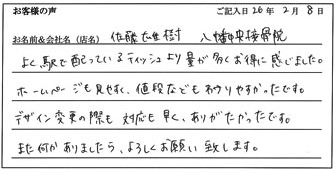 お客様の声 ご記入日 26年 2月 8日
お名前&会社名(店名) 佐藤雄樹 八幡中央接骨院
よく駅で配っているティッシュより量が多くお得に感じました。
ホームページも見やすく、値段などもわかりやすかったです。
デザイン変更の際も対応も早く、ありがたかったです。
また何かありましたら、よろしくお願い致します。